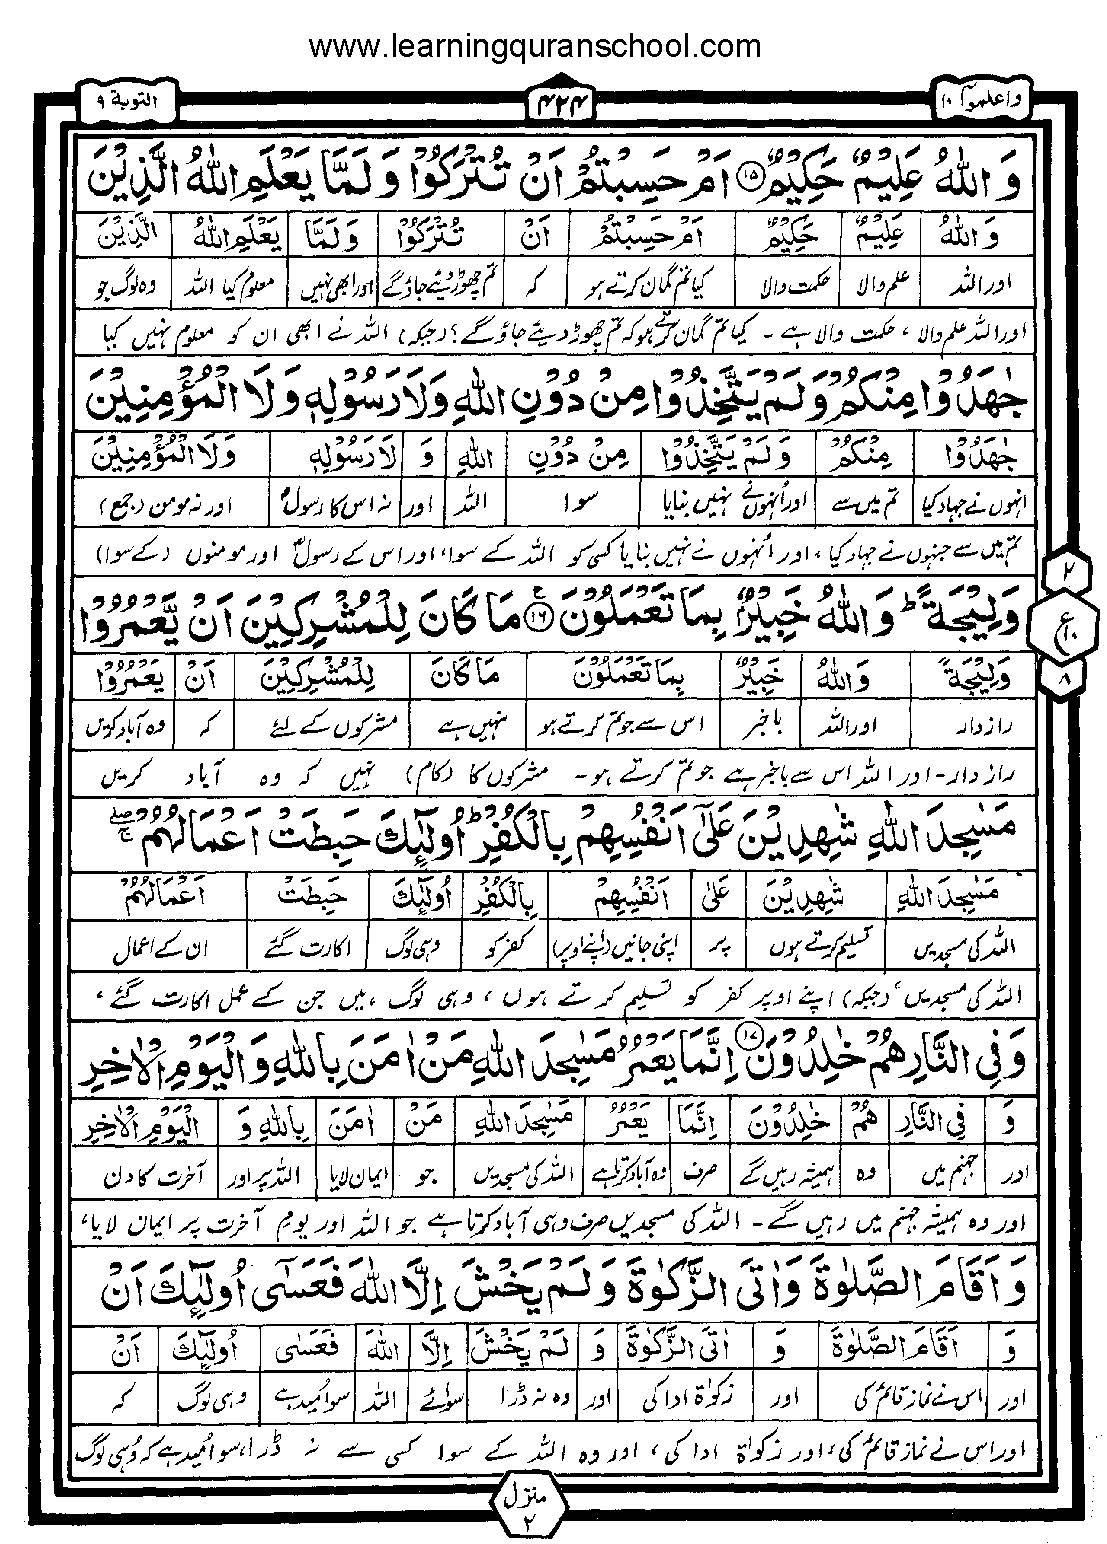 www.learningquranschool.com
واعلموا ١٠
٤٢٤
التوبة ٩
وَ اللّٰهُ عَلِيْمٌ حَكِيْمٌ ۝١٥ اَمْ حَسِبْتُمْ اَنْ تُتْرَكُوْا وَ لَمَّا يَعْلَمِ اللّٰهُ الَّذِيْنَ
وَ اللّٰهُ عَلِيْمٌ حَكِيْمٌ اَمْ حَسِبْتُمْ اَنْ تُتْرَكُوْا وَ لَمَّا يَعْلَمِ اللّٰهُ الَّذِيْنَ
اور اللہ علم والا حکمت والا کیا تم گمان کرتے ہو کہ تم چھوڑ دیئے جاؤ گے اور ابھی نہیں معلوم کیا اللہ وہ لوگ جو
اور اللہ علم والا ، حکمت والا ہے ۔ کیا تم گمان کرتے ہو کہ تم چھوڑ دیئے جاؤ گے ؟ (جبکہ) اللہ نے ابھی ان کو معلوم نہیں کیا
جٰهَدُوْا مِنْكُمْ وَ لَمْ يَتَّخِذُوْا مِنْ دُوْنِ اللّٰهِ وَلَا رَسُوْلِهٖ وَلَا الْمُؤْمِنِيْنَ
جٰهَدُوْا مِنْكُمْ وَ لَمْ يَتَّخِذُوْا مِنْ دُوْنِ اللّٰهِ وَ لَا رَسُوْلِهٖ وَلَا الْمُؤْمِنِيْنَ
انہوں نے جہاد کیا تم میں سے اور انہوں نے نہیں بنایا سوا اللہ اور نہ اس کا رسولؐ اور نہ مومن (جمع)
تم میں سے جنہوں نے جہاد کیا ، اور انہوں نے نہیں بنایا کسی کو اللہ کے سوا، اور اس کے رسولؐ اور مومنوں (کے سوا)
وَلِيْجَةً ؕ وَ اللّٰهُ خَبِيْرٌۢ بِمَا تَعْمَلُوْنَ ۝١٦ مَا كَانَ لِلْمُشْرِكِيْنَ اَنْ يَّعْمُرُوْا
وَلِيْجَةً وَ اللّٰهُ خَبِيْرٌۢ بِمَا تَعْمَلُوْنَ مَا كَانَ لِلْمُشْرِكِيْنَ اَنْ يَعْمُرُوْا
رازدار اور اللہ باخبر اس سے جو تم کرتے ہو نہیں ہے مشرکوں کے لئے کہ وہ آباد کریں
رازدار ۔ اور اللہ اس سے باخبر ہے جو تم کرتے ہو ۔ مشرکوں کا (کام) نہیں کہ وہ آباد کریں
٢
ع
١٠
٨
مَسٰجِدَ اللّٰهِ شٰهِدِيْنَ عَلٰٓى اَنْفُسِهِمْ بِالْكُفْرِ ؕ اُولٰٓئِكَ حَبِطَتْ اَعْمَالُهُمْ ۚۖ
مَسٰجِدَ اللّٰهِ شٰهِدِيْنَ عَلٰٓى اَنْفُسِهِمْ بِالْكُفْرِ اُولٰٓئِكَ حَبِطَتْ اَعْمَالُهُمْ
اللہ کی مسجدیں تسلیم کرتے ہوں پر اپنی جانیں (اپنے اوپر) کفر کو وہی لوگ اکارت گئے ان کے اعمال
اللہ کی مسجدیں، (جبکہ) اپنے اوپر کفر کو تسلیم کرتے ہوں ، وہی لوگ ہیں جن کے عمل اکارت گئے ،
وَ فِي النَّارِ هُمْ خٰلِدُوْنَ ۝١٧ اِنَّمَا يَعْمُرُ مَسٰجِدَ اللّٰهِ مَنْ اٰمَنَ بِاللّٰهِ وَ الْيَوْمِ الْاٰخِرِ
وَ فِي النَّارِ هُمْ خٰلِدُوْنَ اِنَّمَا يَعْمُرُ مَسٰجِدَ اللّٰهِ مَنْ اٰمَنَ بِاللّٰهِ وَ الْيَوْمِ الْاٰخِرِ
اور جہنم میں وہ ہمیشہ رہیں گے صرف وہ آباد کرتا ہے اللہ کی مسجدیں جو ایمان لایا اللہ پر اور آخرت کا دن
اور وہ ہمیشہ جہنم میں رہیں گے ۔ اللہ کی مسجدیں صرف وہی آباد کرتا ہے جو اللہ اور یوم آخرت پر ایمان لایا،
وَ اَقَامَ الصَّلٰوةَ وَ اٰتَى الزَّكٰوةَ وَ لَمْ يَخْشَ اِلَّا اللّٰهَ فَعَسٰٓى اُولٰٓئِكَ اَنْ
وَ اَقَامَ الصَّلٰوةَ وَ اٰتَى الزَّكٰوةَ وَ لَمْ يَخْشَ اِلَّا اللّٰهَ فَعَسٰٓى اُولٰٓئِكَ اَنْ
اور اس نے نماز قائم کی اور زکوٰۃ ادا کی اور وہ نہ ڈرا سوائے اللہ سو امید ہے وہی لوگ کہ
اور اس نے نماز قائم کی، اور زکوٰۃ ادا کی، اور وہ اللہ کے سوا کسی سے نہ ڈرا، سو امید ہے کہ وہی لوگ
منزل ٢